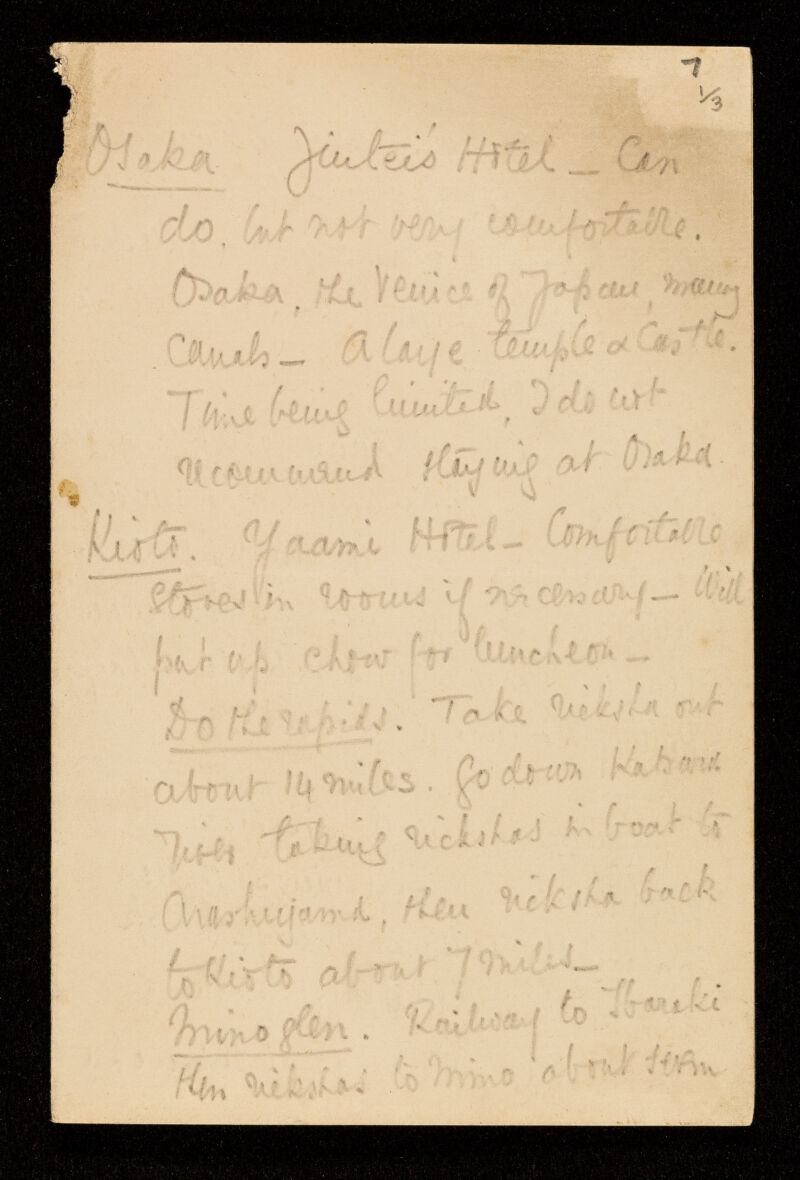 7
1/3
Osaka Jiutei's Hotel – Can
do, but not very comfortable.
Osaka, the Venice of Japan, many
Canals – A large temple & Castle.
Time being limited, I do not
recommend staying at Osaka
Kioto. Yaami Hotel – Comfortable
Stoves in rooms if necessary – Will
put up chow for luncheon –
Do the rapids. Take ricksha out
about 14 miles. Go down Katsura
River taking rickshas in boat to
Arashiyama, then ricksha back
to Kioto about 7 miles –
Mino glen. Railway to Ibaraki
then rickshas to Mino about seven